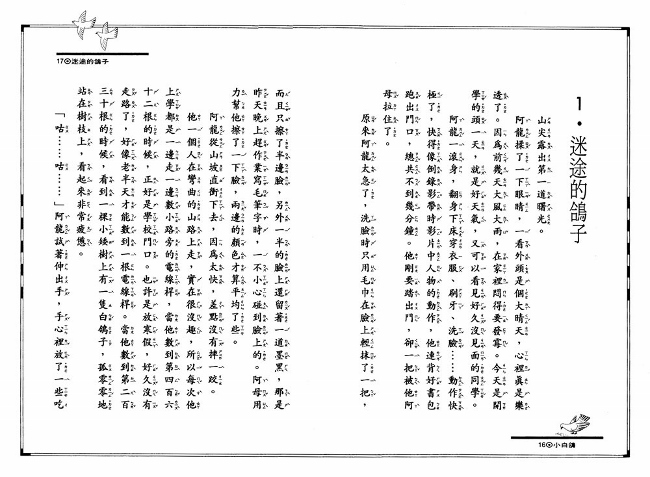 1・迷途的鴿子
山尖露出第一道曙光。
阿龍揉了一下眼睛，一看外頭是個大晴天，心裡真是樂
透了。因為前幾天大風大雨，在家裡悶得要發霉。今天是開
學的頭一天，就是好天氣，又可以看見好久沒見面的同學。
阿龍一滾身，翻身下床穿衣服、刷牙、洗臉……動作快
極了，快得像倒錄影帶時影片中人物的動作，他連背好書包
跑出門口，總共不到幾分鐘。他剛要踏出門，卻一把被他阿
母拉住了。
原來阿龍太急了，洗臉時只用毛巾在臉上輕抹了一把，
16⊙小白鴿
而且只擦了半邊臉，另外一半的臉上還留著一道墨黑，那是
昨天晚上趕作業寫毛筆字時，一不小心碰到臉上的。阿母用
力幫他擦了一下臉，兩邊的顏色才算平均了些。
阿龍從山坡直衝下去，因為太快，差點沒有摔一跤。
他一個人在彎曲的山路上走，實在很沒趣，所以每次他
上學都是一邊走一邊數小路旁的電線桿。當他數到第四百六
十二根的時候，正好是學校門口。也許是放寒假，好久沒有
走路了，好像老半天才能數到一根電線桿。當他數到第二百
三十根的時候，看到一棵小矮樹上有一隻白鴿子，孤零零地
站在樹枝上，看起來非常疲憊。
「咕……咕……」阿龍試著伸出手，手心裡放了一些吃
17⊙迷途的鴿子